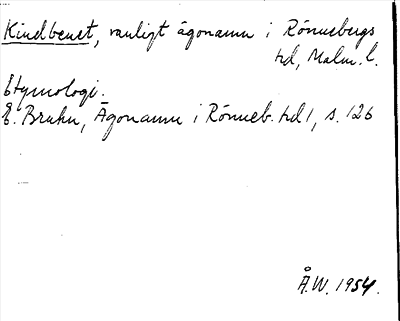 Kindbenet, vanligt ägonamn i Rönnebergs
hd, Malm. l.
Etymologi.
E. Bruhn, Ägonamn i Rönneb. hd 1, s. 126
Å.W. 1954.